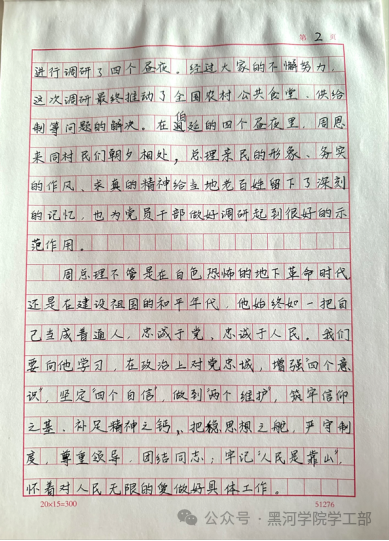 第 2 页
进行调研了四个昼夜。经过大家的不懈努力，
这次调研最终推动了全国农村公共食堂、供给
制等问题的解决。在伯延的四个昼夜里，周恩
来同村民们朝夕相处，总理亲民的形象、务实
的作风、求真的精神给当地老百姓留下了深刻
的记忆，也为党员干部做好调研起到很好的示
范作用。
周总理不管是在白色恐怖的地下革命时代
还是在建设祖国的和平年代，他始终如一把自
己当成普通人，忠诚于党、忠诚于人民。我们
要向他学习，在政治上对党忠诚，增强"四个意
识"，坚定"四个自信"，做到"两个维护"，筑牢信仰
之基、补足精神之钙，把稳思想之舵，严守制
度，尊重领导，团结同志；牢记"人民是靠山"，
怀着对人民无限的爱做好具体工作。
20×15=300 51276
公众号·黑河学院学工部